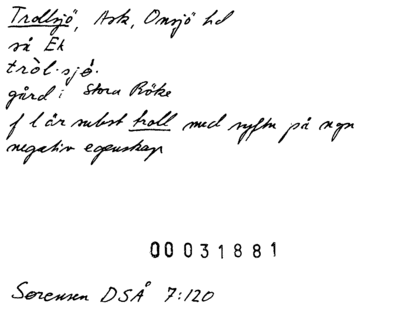 Trollsjö, Ask, Onsjö hd
så Ek
tròl·sjǿ·
gård i Stora Röke
f l är subst troll med syftn på ngn
negativ egenskap
00031881
Sørensen DSÅ 7:120